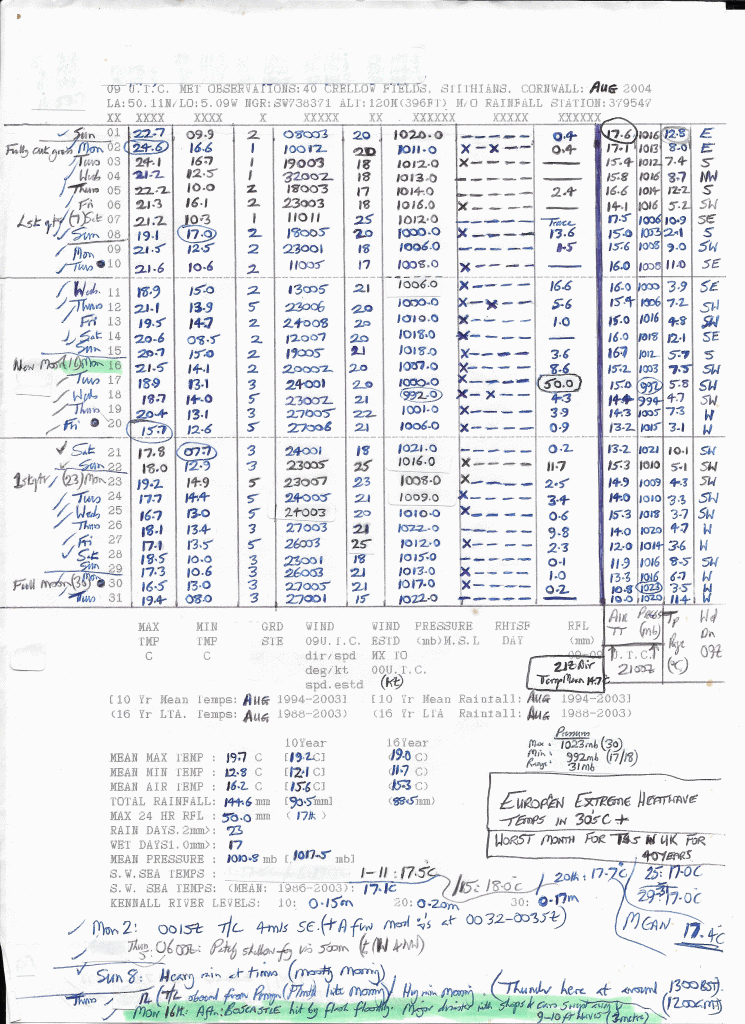 09 U.T.C. MET OBSERVATIONS:40 CRELLOW FIELDS, STITHIANS, CORNWALL: AUG 2004
LA:50.11N/LO:5.09W NGR:SW738371 ALT:120M(396FT) M/O RAINFALL STATION:379547
XX XXXX XXXX X XXXXX XX XXXXXX XXXXXX XXXXXX
Sun 01 22.7 09.9 2 08003 20 1020.0 ------ 0.4 17.6 1016 12.8 E
Mon 02 24.6 16.6 1 10012 20 1011.0 X-X--- 0.4 17.1 1013 8.0 E
Tues 03 24.1 16.7 1 19003 18 1012.0 X----- — 15.4 1012 7.4 S
Wed 04 21.2 12.5 1 32002 18 1013.0 ------ — 15.8 1016 8.7 NW
Thurs 05 22.2 10.0 2 18003 17 1014.0 ------ 2.4 16.6 1014 12.2 S
Fri 06 21.3 16.1 2 23003 18 1016.0 X----- — 14.1 1016 5.2 SW
Last qtr (7) Sat 07 21.2 10.3 1 11011 25 1012.0 ------ Trace 17.5 1006 10.9 SE
Sun 08 19.1 17.0 2 18005 20 1000.0 X----- 13.6 15.0 1003 2.1 S
Mon 09 21.5 12.5 2 23001 18 1006.0 ------ 1.5 15.6 1008 9.0 SW
Tues 10 21.6 10.6 2 11005 17 1008.0 X----- — 16.0 1008 11.0 SE
Wed 11 18.9 15.0 2 13005 21 1006.0 X----- 16.6 16.0 1000 3.9 SE
Thurs 12 21.1 13.9 5 23006 20 1000.0 X-X--- 5.6 15.4 1006 7.2 SW
Fri 13 19.5 14.7 2 24008 20 1010.0 X----- 1.0 15.0 1016 4.8 SW
Sat 14 20.6 08.5 2 12007 20 1018.0 X----- — 16.0 1018 12.1 SE
Sun 15 20.7 15.0 2 19005 21 1018.0 X----- 3.6 16.7 1012 5.7 S
New Moon (16) Mon 16 21.5 14.1 2 20002 20 1007.0 X----- 8.6 15.2 1003 7.5 SW
Tues 17 18.9 13.1 3 24001 20 1000.0 X----- 50.0 15.0 992 5.8 SW
Wed 18 18.7 14.0 5 23002 21 992.0 X-X--- 4.3 14.4 994 4.7 SW
Thurs 19 20.4 13.1 5 27005 22 1001.0 X----- 3.9 14.3 1005 7.3 W
Fri 20 15.7 12.6 5 27006 21 1006.0 X----- 0.9 13.2 1015 3.1 W
Sat 21 17.8 07.7 3 24001 18 1021.0 ------ 0.2 13.2 1021 10.1 SW
Sun 22 18.0 12.9 3 23005 25 1016.0 X----- 11.7 15.3 1010 5.1 SW
1st qtr (23) Mon 23 19.2 14.9 5 23007 23 1008.0 X----- 2.5 14.9 1009 4.3 SW
Tues 24 17.7 14.4 5 24005 21 1009.0 X----- 3.4 14.0 1010 3.3 SW
Wed 25 16.7 13.0 5 24003 20 1010.0 X----- 0.6 15.3 1018 3.7 SW
Thurs 26 18.1 13.4 3 27003 21 1022.0 ------ 9.8 14.0 1020 4.7 W
Fri 27 17.1 13.5 5 26003 25 1012.0 X----- 2.3 12.0 1014 3.6 W
Sat 28 18.5 10.0 3 23001 18 1015.0 ------ 0.1 11.9 1016 8.5 SW
Sun 29 17.3 10.6 3 26003 21 1013.0 X----- 1.0 13.3 1016 6.7 W
Full Moon (30) Mon 30 16.5 13.0 3 27005 21 1017.0 X----- 0.2 10.8 1023 3.5 W
Tues 31 19.4 08.0 3 27001 15 1022.0 ------ 10.0 1020 11.4 W
MAX MIN GRD WIND WIND PRESSURE RHTSF RFL AIR PRESS Tp Wd
TMP TMP STE 09U.T.C. ESTD (mb)M.S.L DAY (mm) TT (mb) Rge Dn
C C dir/spd MX TO 09-09 U.T.C. 09Z
deg/kt 00U.T.C. 2100Z (°C)
spd.estd (kt)
21Z Air Temp Mean 14.7C
[10 Yr Mean Temps: AUG 1994-2003] [10 Yr Mean Rainfall: AUG 1994-2003]
(16 Yr LTA. Temps: AUG 1988-2003) (16 Yr LTA Rainfall: AUG 1988-2003)
Pressure
Max: 1023mb (30)
Min: 992mb (17/18)
Range: 31mb
10Year 16Year
MEAN MAX TEMP : 19.7 C [19.2C] (19.0 C)
MEAN MIN TEMP : 12.8 C [12.1C] (11.7 C)
MEAN AIR TEMP : 16.2 C [15.6C] (15.3 C)
TOTAL RAINFALL: 144.6 mm [90.5mm] (88.5mm)
MAX 24 HR RFL : 50.0 mm (17th)
RAIN DAYS.2mm): 23
WET DAYS1.0mm): 17
MEAN PRESSURE : 1010.8 mb [1017.5 mb]
EUROPEAN EXTREME HEATWAVE
TEMPS IN 30'S C +
WORST MONTH FOR IN UK FOR
40 YEARS
S.W.SEA TEMPS : 1-11: 17.5°C /15: 18.0°C / 20th: 17.7°C 25: 17.0C
S.W. SEA TEMPS (MEAN: 1986-2003): 17.1C 29-31: 17.0C
KENNALL RIVER LEVELS: 10: 0.15m 20: 0.20m 30: 0.17m
MEAN 17.4°C
Mon 2: 0015Z T/L 4mls SE. (+ A few mod at 0032-0035Z)
Thurs 5: 0600Z: Patchy shallow fog vis 500m
Sun 8: Heavy rain at times (mostly Morning)
Thurs 12 (T/L abound from Penryn late morning) / Hvy rain morning (Thunder here at around 1300BST) (1200GMT)
Mon 16th: Aftn: BOSCASTLE hit by flash flooding. Major disaster with shops & cars swept away 9-10 ft (3 metres)